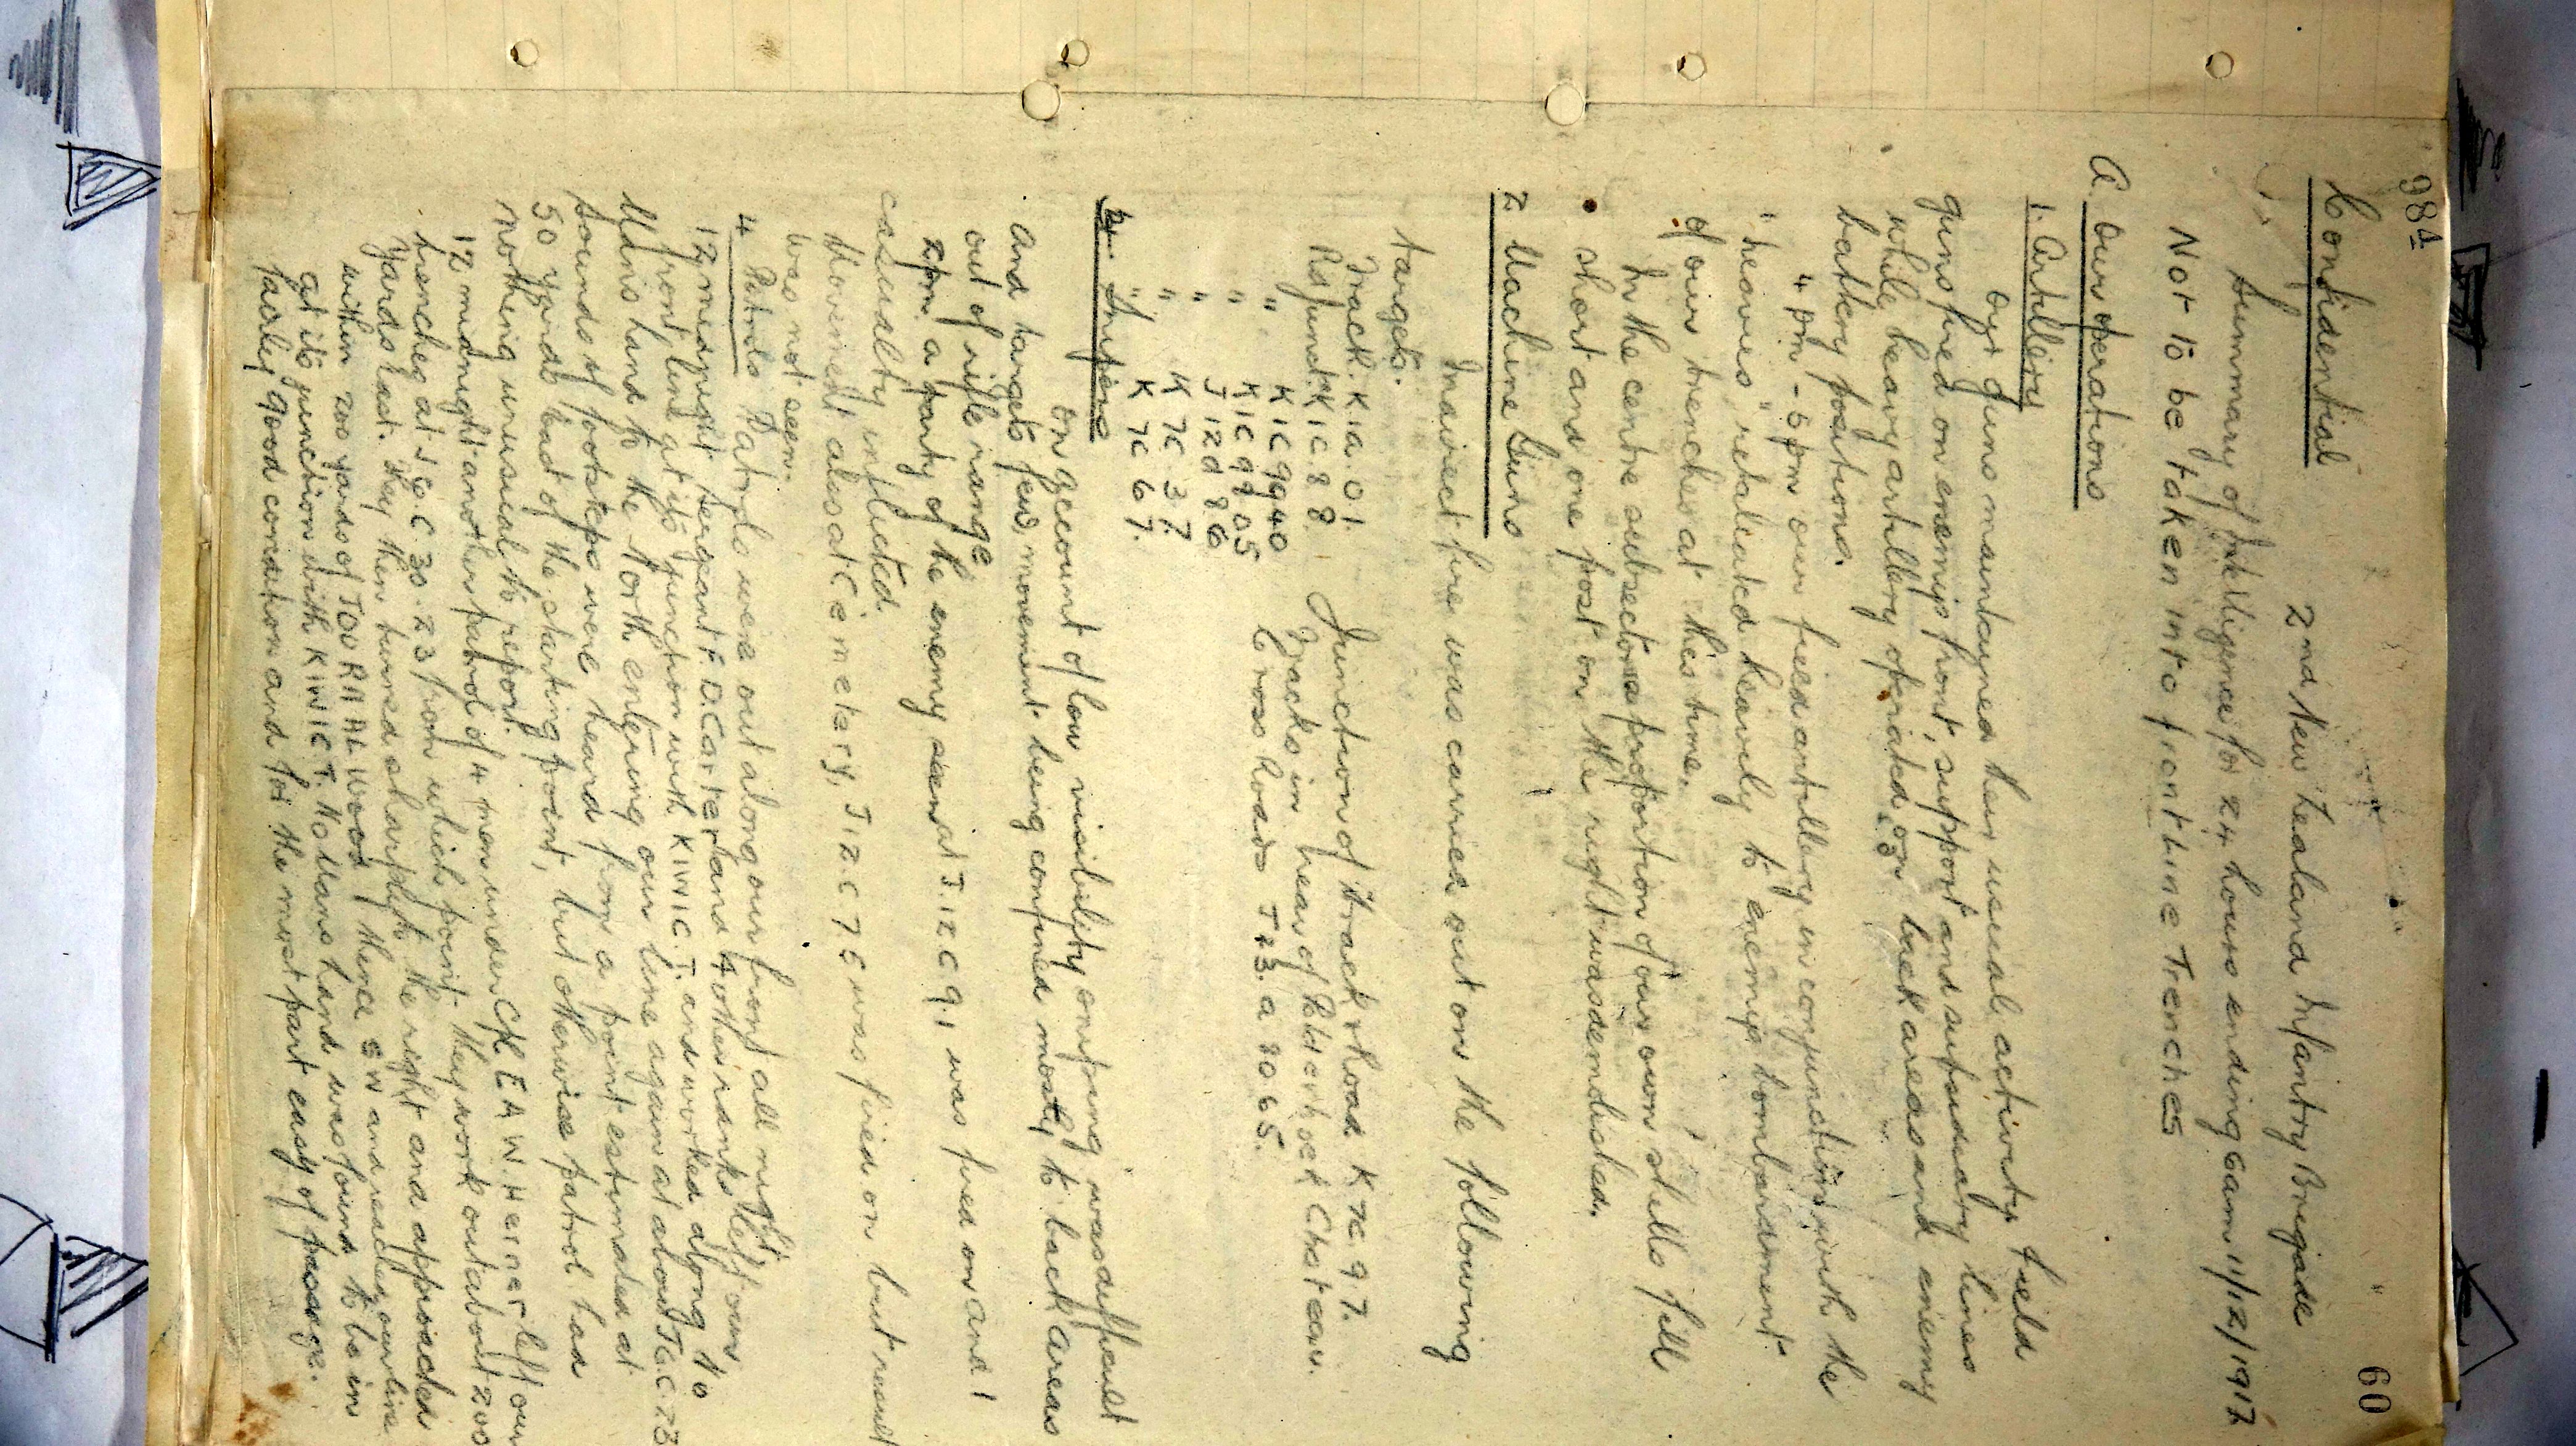 98A
60
Confidential
2nd New Zealand Infantry Brigade
Summary of Intelligence for 24 hours ending 6am 11/12/1917
Not to be taken into front line Trenches
A. Our operations
1. Artillery
Our guns maintained their usual activity field
guns fired on enemys front, support and subsidiary lines
while heavy artillery operated on back areas and enemy
battery positions.
4 pm - 5 pm our field artillery in conjunction with the
"heavies" retaliated heavily to enemys bombardment
of our trenches at this time.
In the centre subsector a proportion of our own shells fell
short and one post on the right was demolished.
2 Machine Guns
Indirect fire was carried out on the following
targets.
Track K1a.01. Junction of Track & Road K7c.97.
Rd Junct K1c 88. Tracks in rear of Polderhoek Chateau.
" K1c 9940 Cross Roads J23.a 80 65.
" K1c 9905
" J12d 86
" K7c 37
" K7c 67.
Sniping
On account of low visibility sniping was difficult
and targets few, movement being confined mostly to back areas
out of rifle range
2pm. a party of the enemy seen at J.12c 9.1 was fired on and 1
casualty inflicted.
Movement also at Cemetery, J12.c 75 was fired on but result
was not seen.
4 Patrols Patrols were out along our front all night
12 midnight Sergeant F.D. Carter and 4 other ranks left our
front line at its junction with KIWI C.T. and worked along to
Mans Land to the North entering our line again at about J6.C.73
Sounds of footsteps were heard from a point estimated at
50 yards East of the starting point, but otherwise patrol had
nothing unusual to report.
12 midnight another patrol of 4 men under Cpl E A W Harner left our
trenches at J6.C.30.23 from which point they work out about 200
yards East. They then turned sharply to the right and approached
within 200 yards of JOURAAL WOOD thence SW and reached our line
at its junction with KIWI C.T. No Mans Land was found to be in
fairly good condition and for the most part easy of passage.